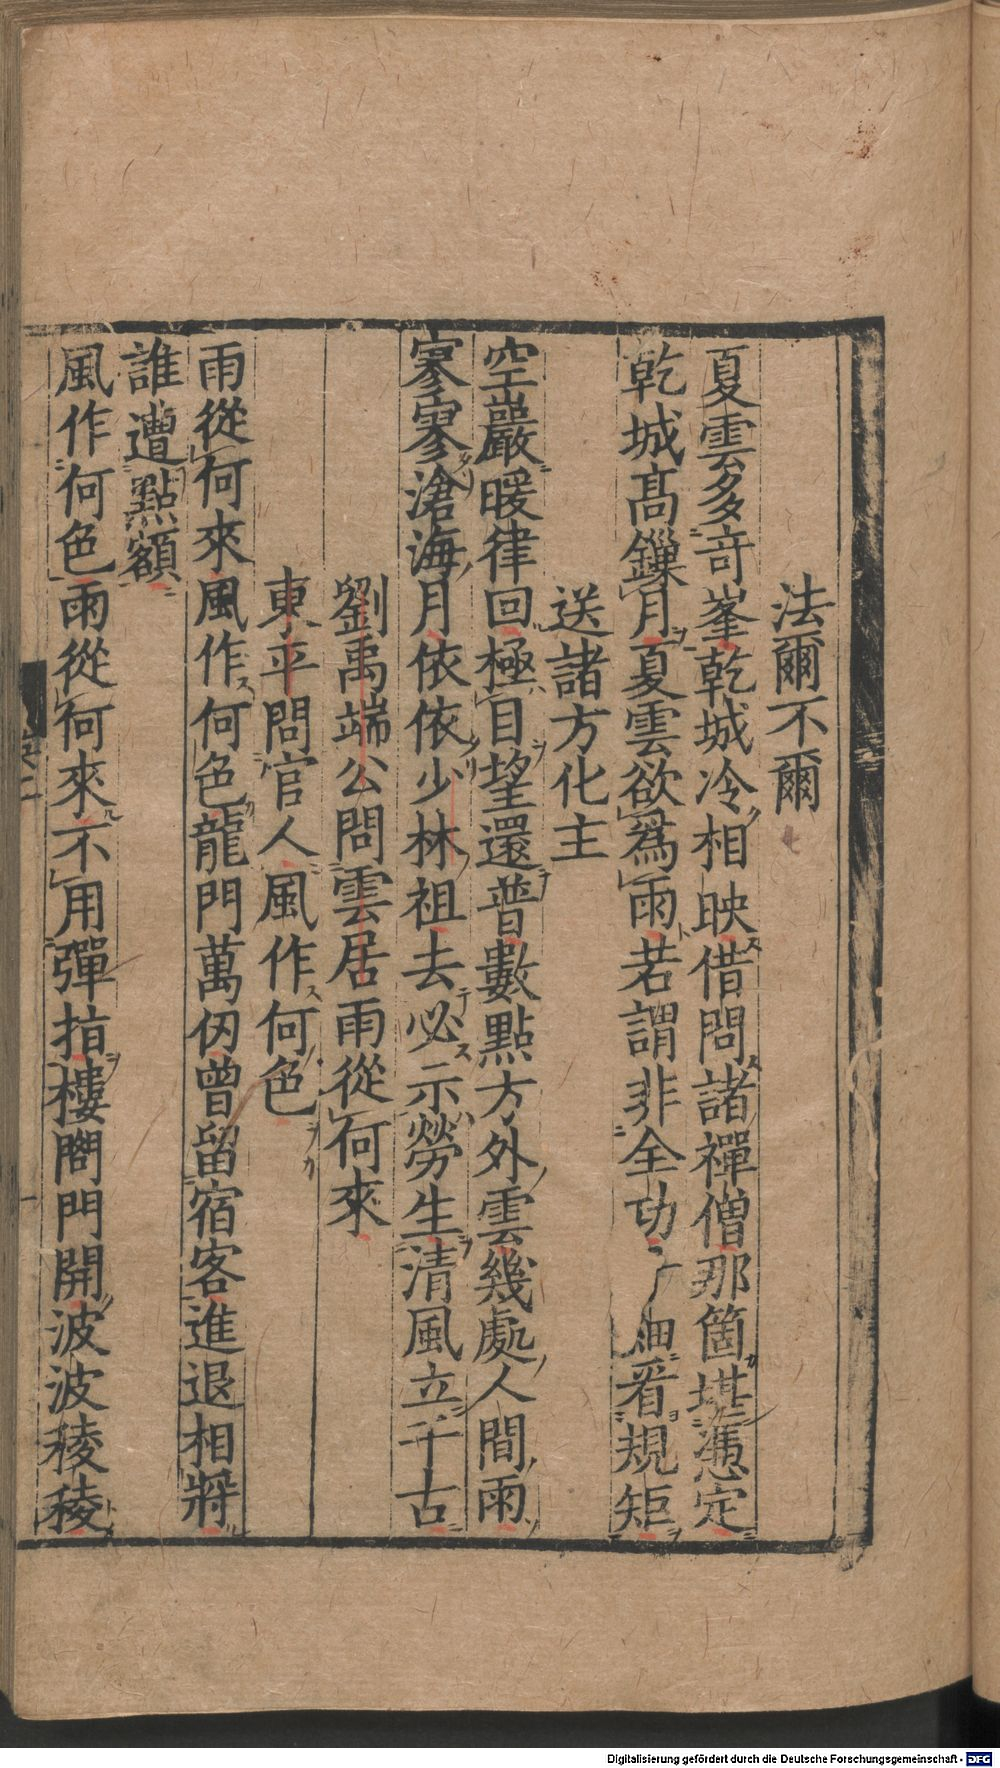 法爾不爾
夏雲多奇峯乾城冷相映借問諸禪僧那箇堪憑定
乾城高鏁月夏雲欲爲雨若謂非全功 細看規矩
送諸方化主
空巖暖律回極目望還普數點方外雲幾處人間雨
寥寥滄海月依依少林祖去必示勞生清風立千古
劉禹端公問雲居雨從何來
東平問官人風作何色
雨從何來風作何色龍門萬仭曾留宿客進退相將
誰遭點額
風作何色雨從何來不用彈指樓閣門開波波稜稜
Digitalisierung gefördert durch die Deutsche Forschungsgemeinschaft - DFG